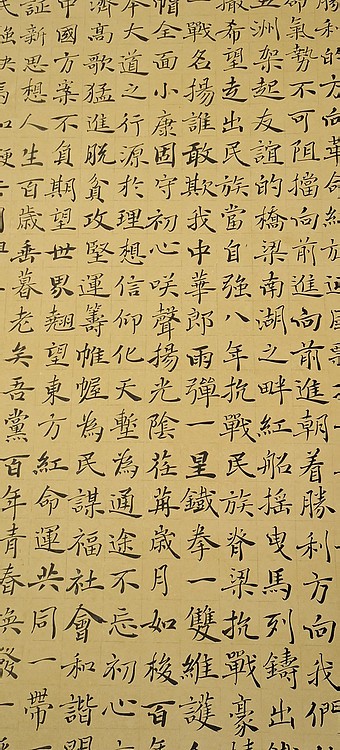 勝利的方向
氣勢不可阻擋向前進向前進朝着勝利方向我們
洲架起友誼的橋梁南湖之畔紅船搖曳馬列鑄出
撤希望走出民族當自強八年抗戰民族脊梁抗戰豪
一戰名揚誰敢欺我中華郎雨彈一星鐵拳一雙維護
帽全面小康固守初心咲聲揚光陰荏苒歲月如梭百年
本大道之行源於理想信仰化天塹為通途不忘初心
濟高歌猛進脫貧攻堅運籌帷幄為民謀福社會和諧
中國方案不負期望世界翹望東方紅命運共同一帶
証新思想人生百歲垂暮老矣吾黨百年青春煥發一